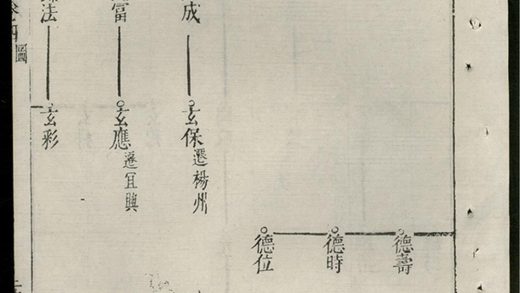 德壽
德時
德位
成
玄保遷楊州
玄應遷冝興
法
玄彩
圖